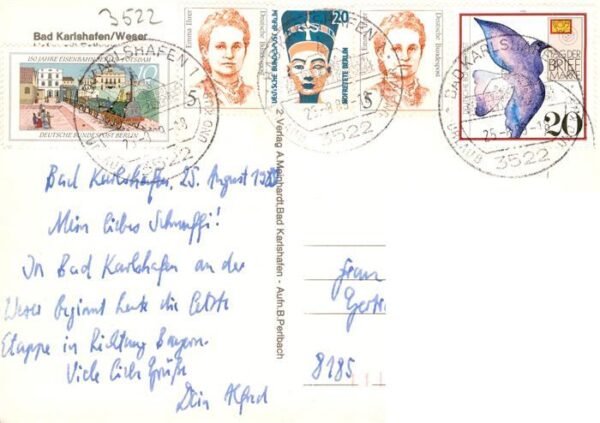 3522
Bad Karlshafen/Weser
150 JAHRE EISENBAHN BERLIN-POTSDAM
DEUTSCHE BUNDESPOST BERLIN
Emma Ihrer
Deutsche Bundespost
5
20
DEUTSCHE BUNDESPOST BERLIN
NOFRETETE BERLIN
Emma Ihrer
Deutsche Bundespost
5
TAG DER
BRIEF
MARKE
20
BAD KARLSHAFEN 1
3522
BAD KARLSHAFEN
URLAUB
3522
Bad Karlshafen, 25. August 1988
Mein liebes Schnuffi!
In Bad Karlshafen an der
Weser beginnt heute die letzte
Etappe in Richtung Bayern.
Viele liebe Grüße
Dein Alfred
2 Verlag A. Meinhardt, Bad Karlshafen - Aufn. B. Perlbach
Frau
8185